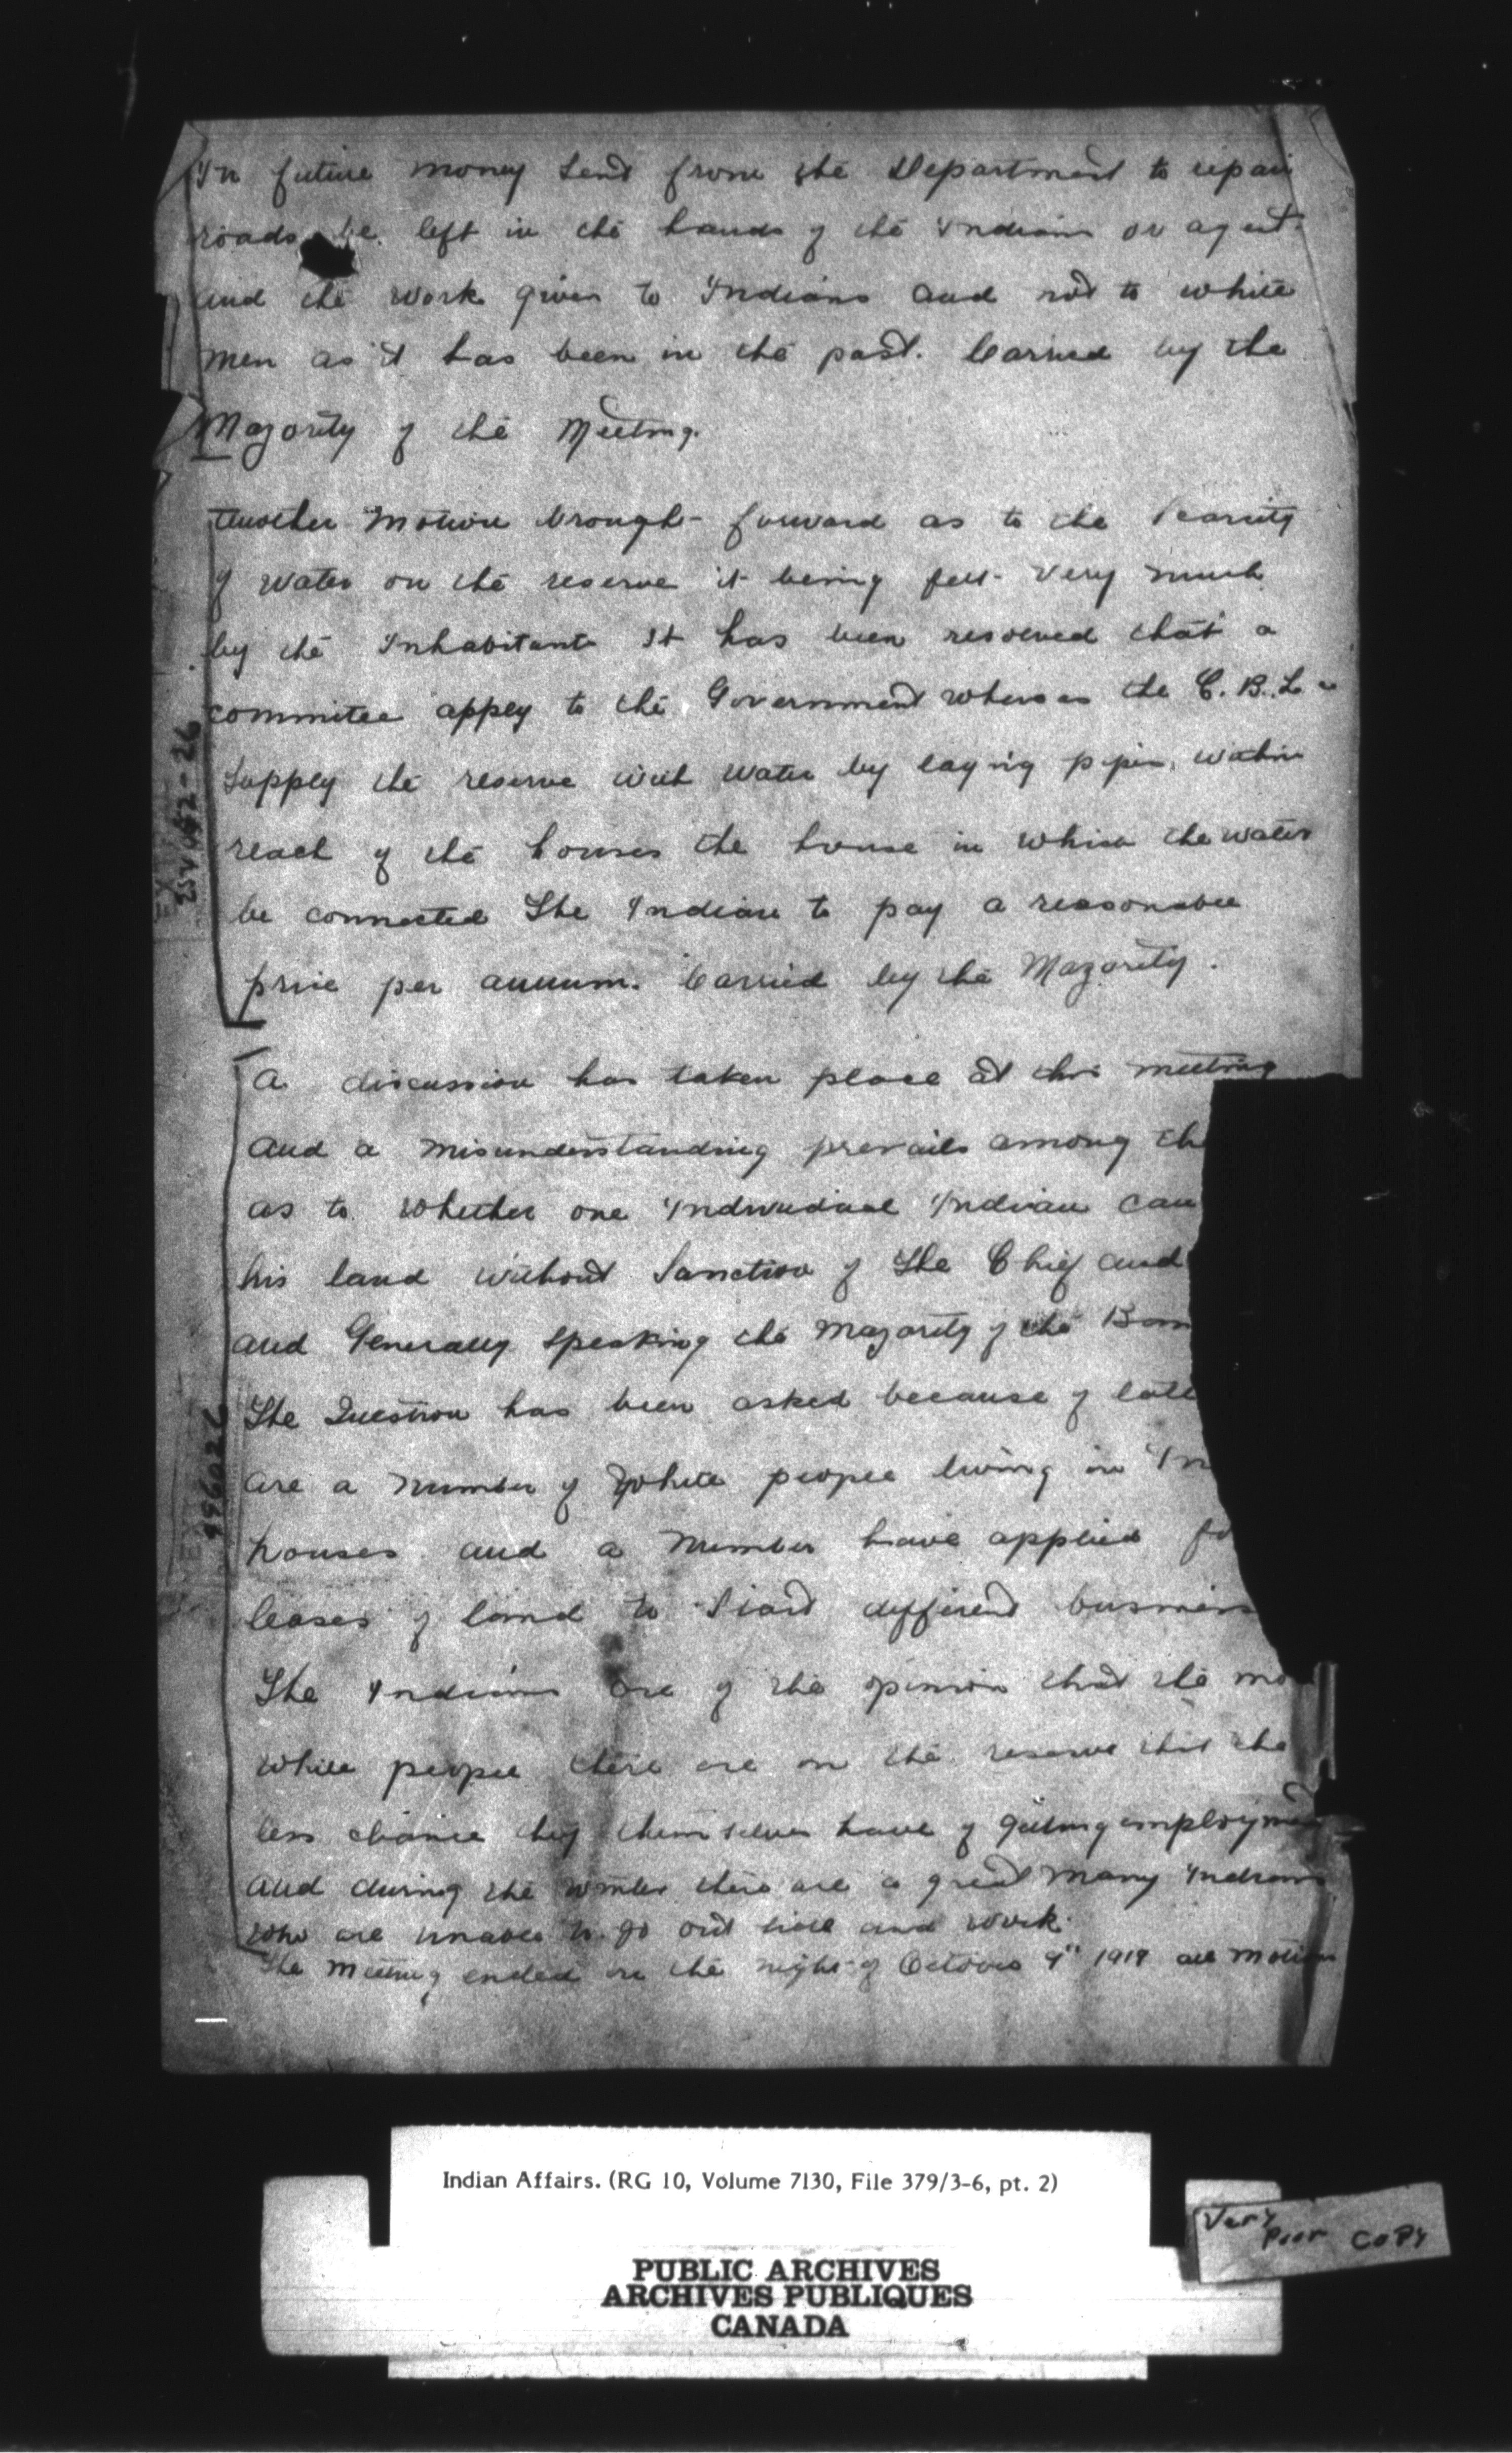 In future money Send from the Department to repair
roads be left in the hands of the Indians or agent
and the Work given to Indians and not to white
men as it has been in the past. Carried by the
Majority of the Meeting.
Another Motion brought forward as to the Scarcity
of Water on the reserve it being felt Very much
by the Inhabitants It has been resolved that a
committee apply to the Government whereas the C. B. L.
Supply the reserve with Water by laying pipes, within
reach of the houses the house in which the water
be connected The Indians to pay a reasonable
price per annum. Carried by the Majority.
A discussion has taken place at this meeting
and a misunderstanding prevails among th
as to Whether one Individual Indian can
his land Without Sanction of The Chief and
and Generally Speaking the Majority of the Ban
The Question has been asked because of late
are a Number of White people living in In
houses and a Number have applied fo
leases of land to Start different business
The Indians are of the opinion that the mo
White people there are on the reserve that the
less chance they themselves have of getting employme
and during the Winter there are a great Many Indians
Who are unable to go out side and Work.
The Meeting ended on the night of October 9" 1919 all Motions
Indian Affairs. (RG 10, Volume 7130, File 379/3-6, pt. 2)
Very Poor COPY
PUBLIC ARCHIVES
ARCHIVES PUBLIQUES
CANADA